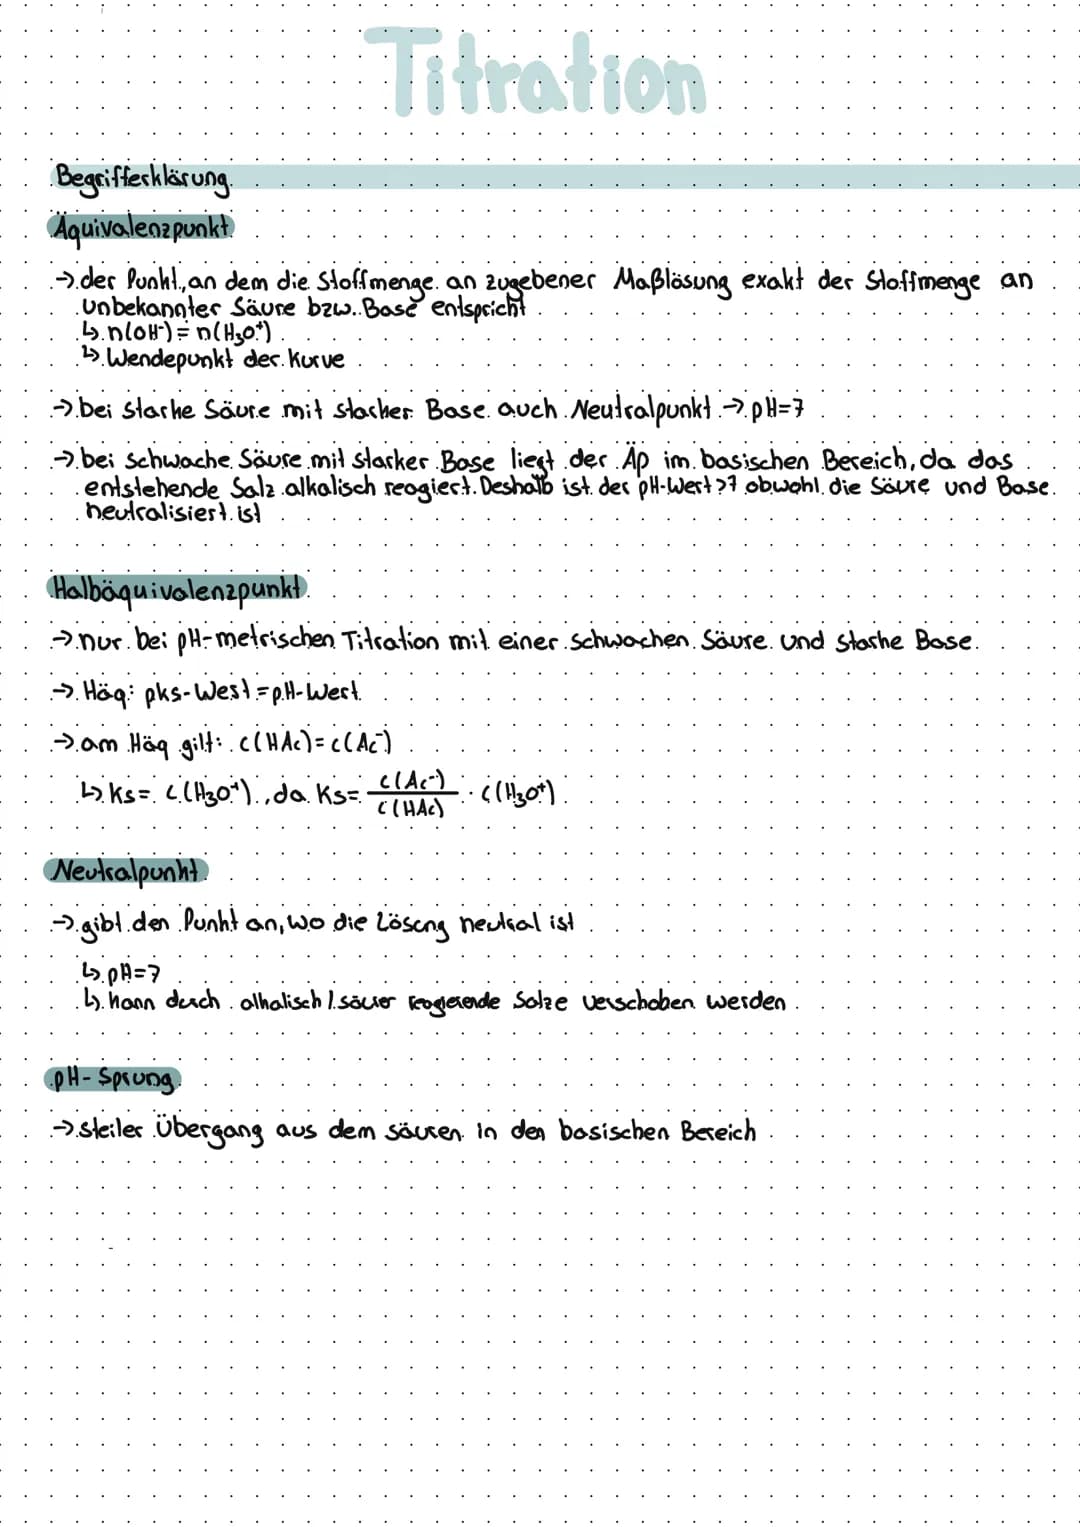 Titration
Begriffserklärung
Äquivalenzpunkt
→ der Punkt, an dem die Stoffmenge an zugebener Maßlösung exakt der Stoffmenge an
unbekannter Säure bzw. Base entspricht
↳ n(OH⁻) = n(H₃O⁺)
↳ Wendepunkt der Kurve
→ bei starke Säure mit starker Base auch Neutralpunkt → pH=7
→ bei schwache Säure mit starker Base liegt der Äp im basischen Bereich, da das
entstehende Salz alkalisch reagiert. Deshalb ist der pH-Wert >7 obwohl die Säure und Base
neutralisiert ist
Halbäquivalenzpunkt
→ nur bei pH-metrischen Titration mit einer schwachen Säure und starke Base
→ Häq: pks-Wert = pH-Wert
→ am Häq gilt: c(HAc) = c(Ac⁻)
↳ Ks = c(H₃O⁺), da Ks = c(Ac⁻)/c(HAc) · c(H₃O⁺)
Neutralpunkt
→ gibt den Punkt an, wo die Lösung neutral ist
↳ pH=7
↳ kann durch alkalisch / sauer reagierende Salze verschoben werden
pH-Sprung
→ steiler Übergang aus dem sauren in den basischen Bereich